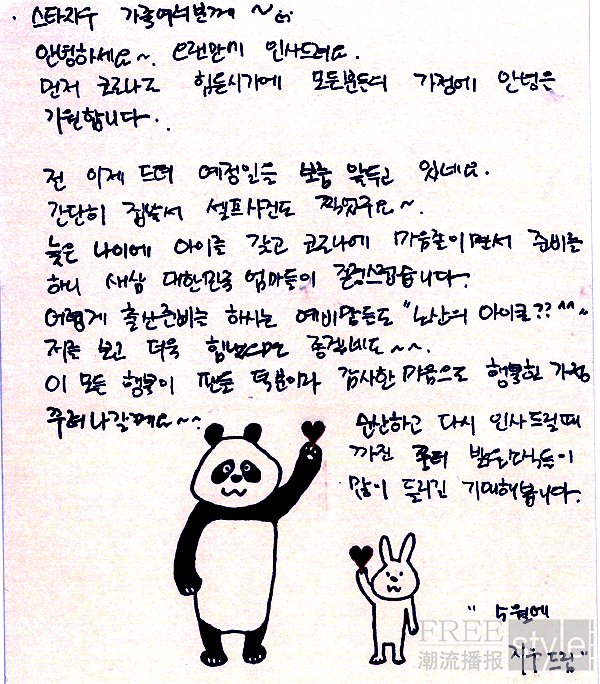 · 스타지우 가족여러분께 ~
안녕하세요~. 오랜만에 인사드려요.
먼저 코로나로 힘든시기에 모든분들의 가정에 안녕을
기원합니다.
전 이제 드뎌 예정일을 보름 앞두고 있네요.
간단히 집에서 셀프사진도 찍었구요~.
늦은 나이에 아이를 갖고 코로나에 마음졸이면서 준비를
하니 새삼 대한민국 엄마들이 존경스럽습니다.
어렵게 출산준비를 하시는 예비맘들도 "노산의 아이콘?? ^^~
저를 보고 더욱 힘내시면 좋겠네요~~.
이 모든 행복이 팬들 덕분이라 감사한 마음으로 행복한 가정
꾸려나갈께요~~
순산하고 다시 인사드릴때
까진 밝은소식들이
많이 들리길 기대해봅니다.
" 5월에
지우드림"
FREE style
潮流播报